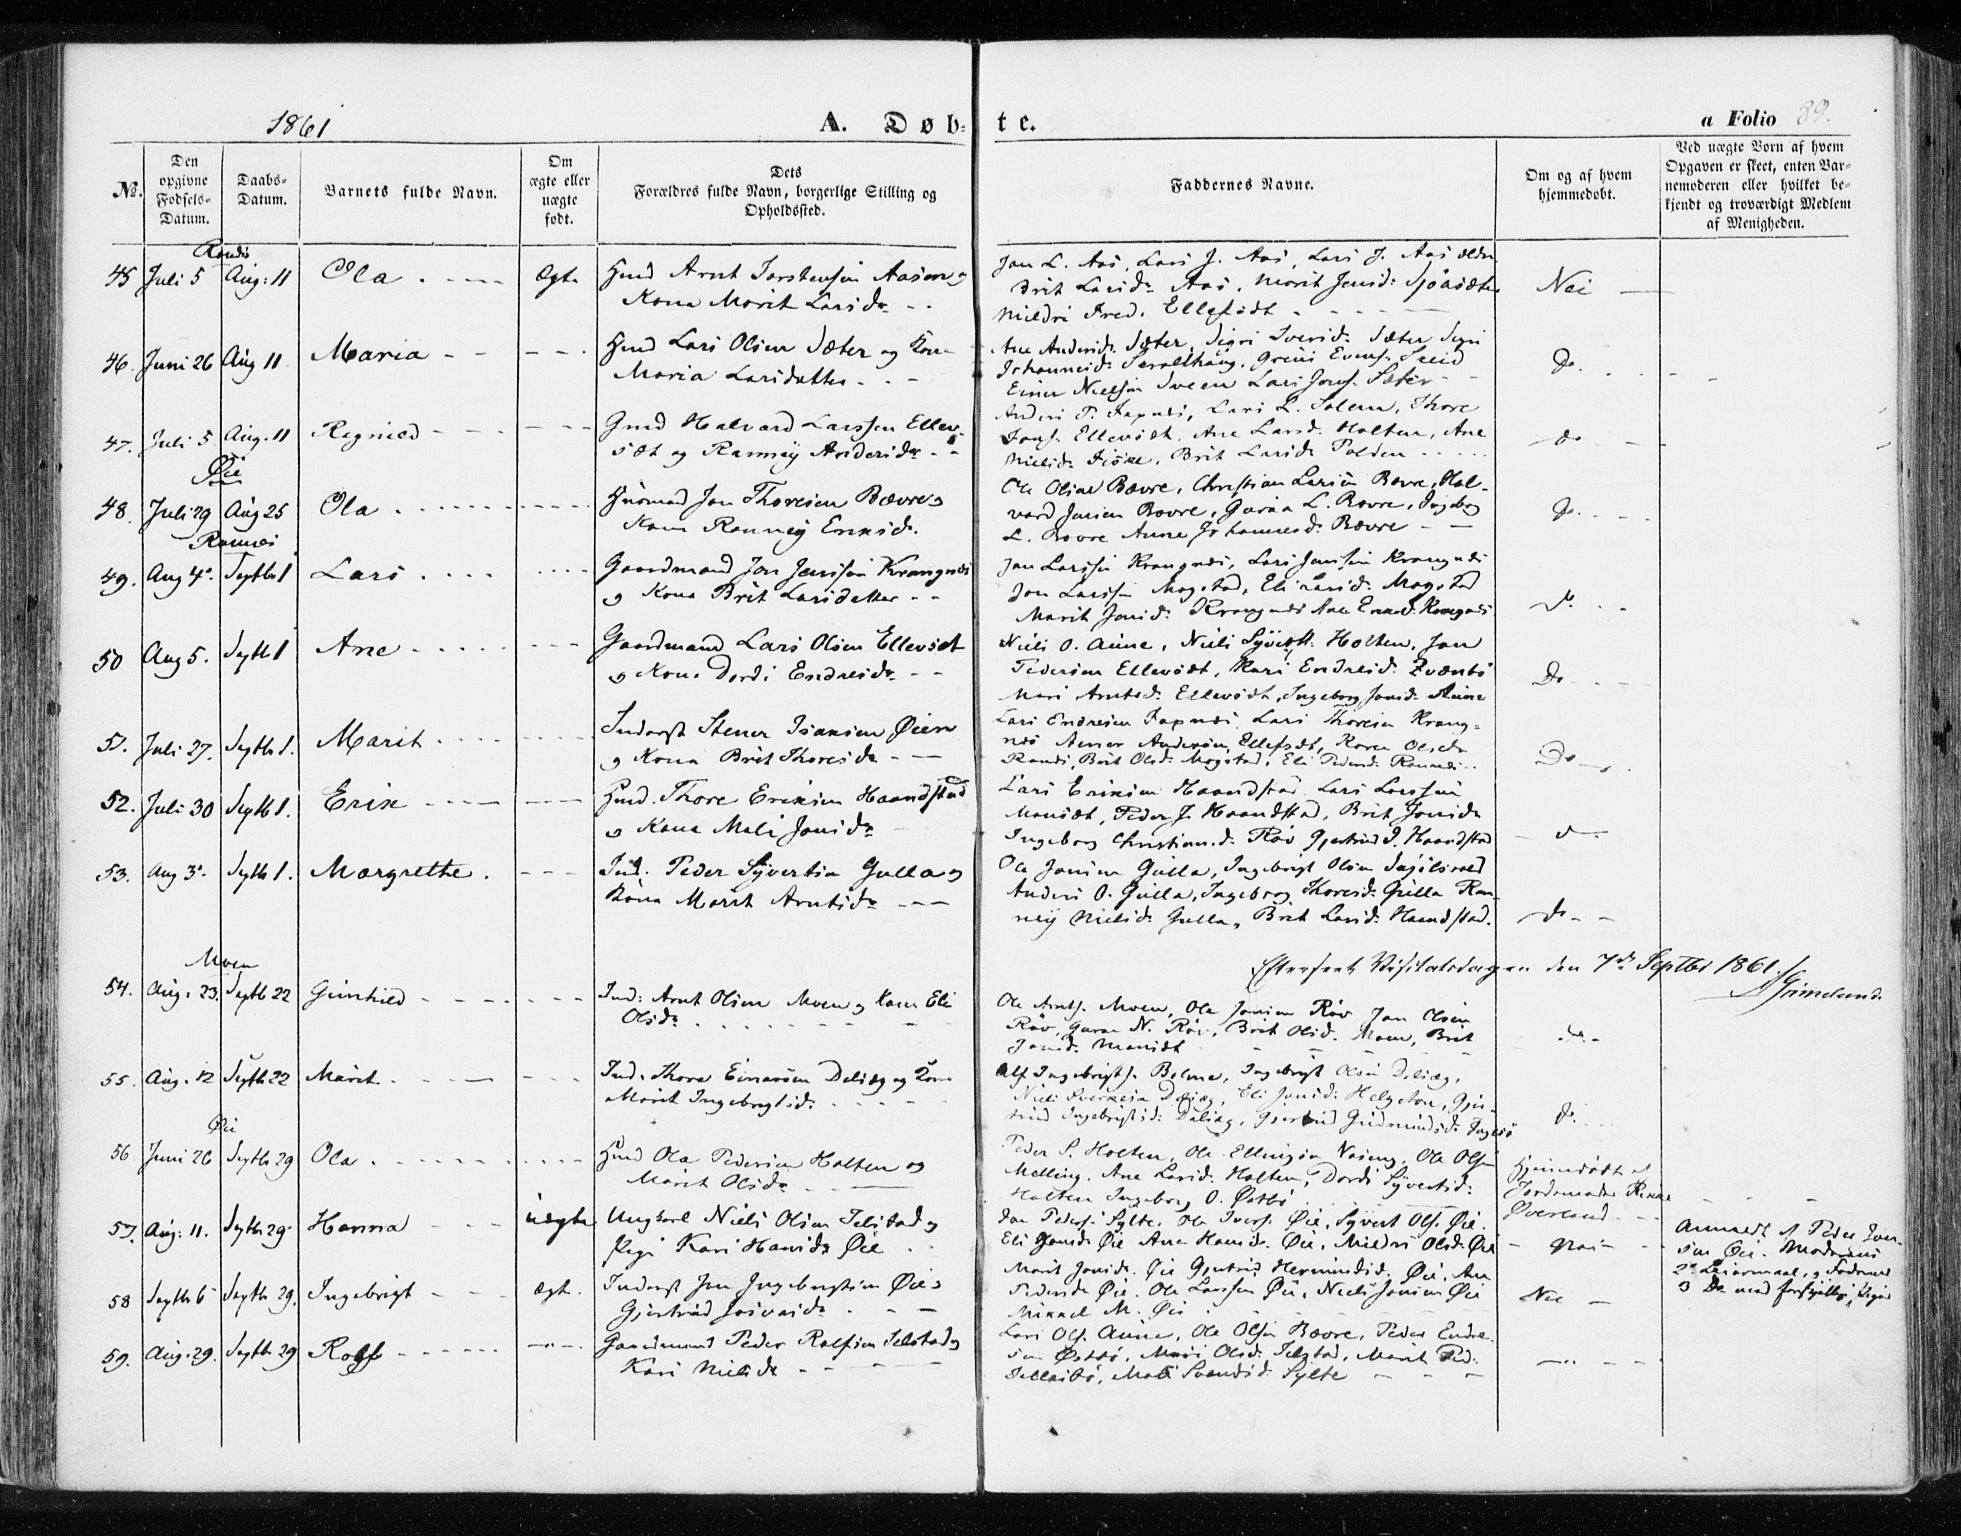 1861
A. Døb-
te.
a Folio 89.
No.
Den opgivne Fødsels-Datum.
Daabs-Datum.
Barnets fulde Navn.
Om ægte eller uægte født.
Dets Forældres fulde Navn, borgerlige Stilling og Opholdssted.
Faddernes Navne.
Om og af hvem hjemmedøbt.
Ved uægte Børn af hvem Opgaven er skeet, enten Barnemoderen eller hvilket bekjendt og troværdigt Medlem af Menigheden.
45 Juli 5 Aug: 11 Ola Ægte Hmd Arnt Torstensen Aasen og
Kona Marit Larsdr
Jon L. Aas, Lars J. Aas, Lars J. Aas ældre
Brit Larsdr Aas, Marit Jonsd:
Mildri Ellefsødt
Nei
46. Juni 26 Aug 11 Maria Hmd Lars Olsen Sæter og Kone
Maria Larsdatter
Ane Andersdr. Sæter, Sigri Sæter
Einer Nielsen Sveen Lars Jons. Sæter
Do.
47. Juli 5 Aug. 11 Ragnild Gmd Halvard Larssen Ellev-
sæt og Rannøy Andersdr
Anders P. Fapnæs, Lars L. Solem, Thore
Jons. Ellevsødt, Ane Larsd. Holten, Ane
Nielsdr Brit Larsdr Polden
do
Øie
48. Juli 29 Aug 25 Ola Husmand Jon Thoresen Bævre og
Kone Rannøy Eriksdr.
Ole Olsen Bævre, Christian Larsen Bævre, Hal-
vard Jonsen Bævre, Guraa L. Bævre, Ingebog
L. Bævre Anne Johannesdr Bævre
Do.
Rannæs
49. Aug 4 Septbr 1 Lars Gaardmand Jon Jonssen Krangnæs
og Kona Brit Larsdatter
Jon Larssen Krangnæs, Lars Jonssen Krangnæs
Jon Larssen Mogstad, Eli Larsd: Mogstad
Marit Jonsd: Krangnæs Ane Eriksd. Krangnæs
do.
50 Aug 5. Septb 1 Ane Gaardmand Lars Olsen Ellevsæt
og Kona Dordi Endresdr
Niels O. Aune, Niels Syverts. Holten, Jon
Pedersen Ellevsødt, Kari Endresd:
Mari Arntsd: Ellevsødt, Ingeborg Jonsd. Aune
Do
51. Juli 27. Septbr 1. Marit Inderst Stener Isaksen Øien
og Kona Brit Thoresdr
Lars Endresen Fapnæs, Lars Thoresen Krang-
næs Andersen, Ellefsæt, Karen Olsdr
Brit Olsd. Mogstad, Eli Pedersd. Rannæs
Do
52. Juli 30 Septb 1. Erik Hmd. Thore Eriksen Haandstad
og Kona Mali Jonsdr
Lars Eriksen Haandstad Lars Larssen
Mansæt, Peder J. Haandstad, Brit Jonsdr
Ingeborg Christiansd: Røv Gjertrud P. Haandstad
d
53. Aug 3. Septb 1. Margrethe Ind. Peder Syvertsen Gulla og
Kona Marit Arntsdr
Ole Jonsen Gulla, Ingebrigt Olsen
Anders O. Gulla, Ingeborg Thoresd: Gulla Ran-
nøy Nielsdr Gulla, Brit Larsd: Haandstad.
do
Efterseet Visitatsdagen den 7de Septbr 1861. Grimelund.
Moen
54. Aug. 23. Septb 22 Gunhild Ind: Arnt Olsen Moen og Kone Eli
Olsdr
Ole Arnts. Moen, Ole Jonsen Røv Jon Olsen
Røv, Guraa N. Røv, Brit Olsd. Moen, Brit
Jonsd. Mansæt
do.
55. Aug. 12 Septb 22 Marit Ind. Thore Einarsen Dalsæg og Kone
Marit Ingebrigtsdr
Ingebrigts. Bolme, Ingebrigt Olsen Dalsæg,
Niels Dalsæg, Eli Jonsd: Helgeton, Gjer-
trud Ingebrigtsd: Dalsæg, Gjertrud Gudmundsd.
do
Øie
56. Juni 26 Septb 29 Ola Hmd Ola Pedersen Holten og
Marit Olsdr
Peder S. Holten, Ole Ellingsen Ole Olsen
Melling, Ane Larsd. Holten, Dordi Syvertsd:
Holten Ingeborg O. Østbø
Hjemmedøbt af
Jordemoder
Øverland
57. Aug: 11. Septb 29. Hanna uægte Ungkarl Niels Olsen Telstad og
Pige Kari Hansdr Øie
Jon Peders. Sylte, Ole Ivers. Øie, Syvert Ols. Øie.
Eli Jonsd: Øie Ane Hansdr. Øie, Mildri Olsd: Øie
Nei
Anmeldt af Peder Iver-
sen Øie. Moderens
2det Leiermaal, og Faderens
3 Do med forskjellige Piger
58 Septb 6 Septb 29. Ingebrigt ægte. Inderst Jon Ingebrigtsen Øie og
Gjertrud
Marit Jonsdr. Øie Gjertrud Øie, Ane
Pedersdr Øie. Ole Larssen Øie, Niels Jonsen Øie
Mikkel M. Øie
Nei
59. Aug. 29. Septb 29 Rolf Gaardmand Peder Rolfsen Telstad og
Kari Nielsdr
Lars Ols. Aune, Ole Olsen Bævre, Peder Endre-
sen Østbø, Mari Olsd: Telstad, Marit Ped:
Mali Svendsd. Sylte